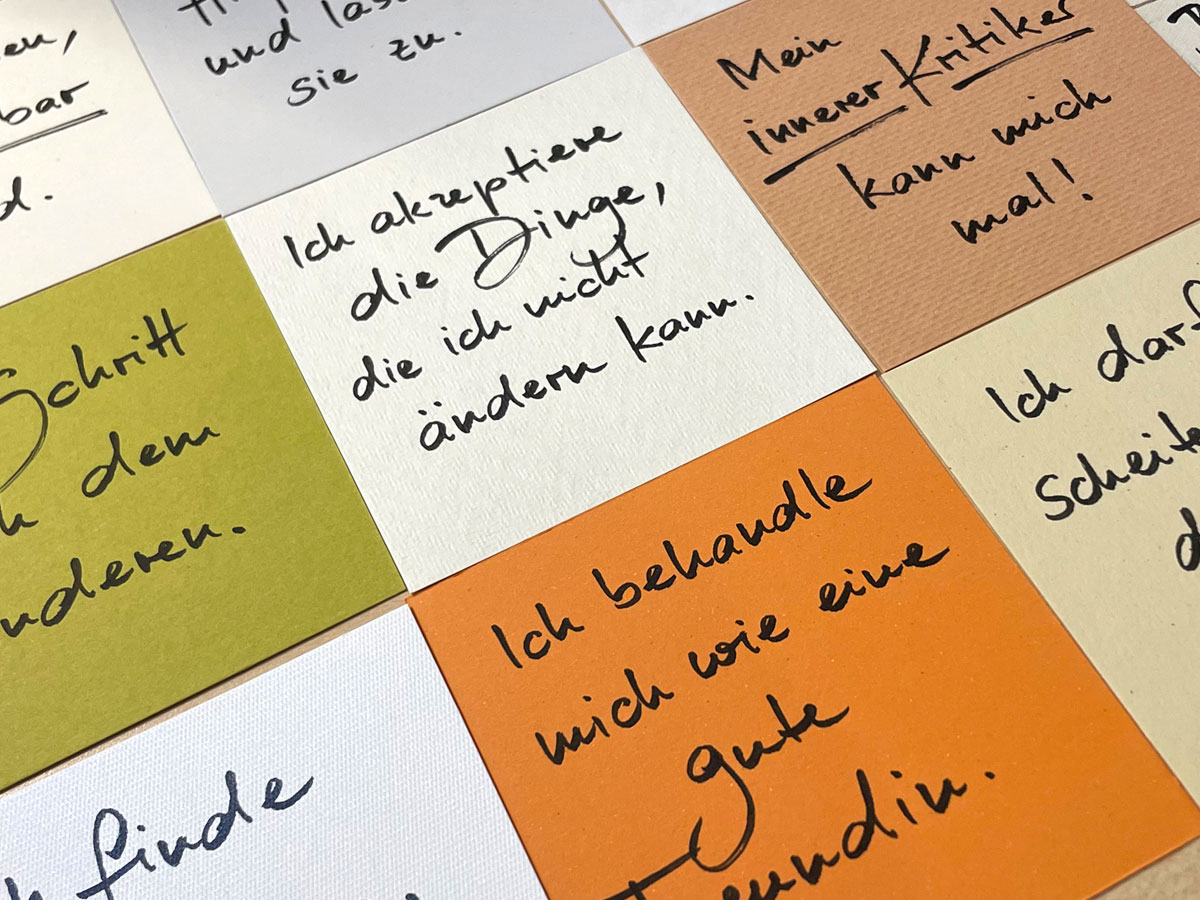 bar
und
sie zu.
Mein
innerer Kritiker
kann mich
mal!
Ich akzeptiere
die Dinge,
die ich nicht
ändern kann.
Schritt
dem
Ich
Ich behandle
mich wie eine
gute
finde